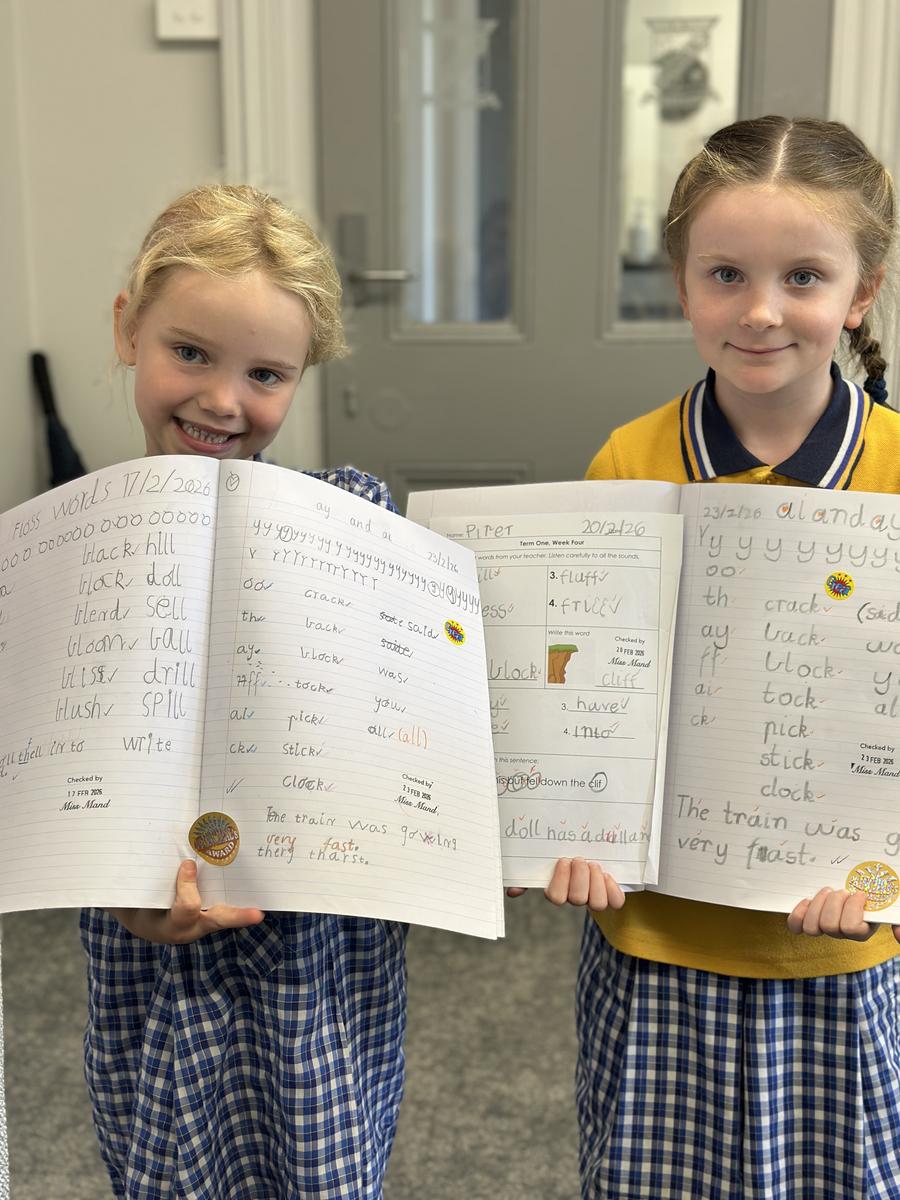 Floss words 17/2/2026
black hill
block doll
blend sell
bloom ball
bliss drill
blush spill
write
Checked by
17 FEB 2026
Miss Mand
ay and ai
23/2/26
oo crack said
th back
ay block was
ff tock you
ai pick all (all)
ck stick
clock
Checked by
23 FEB 2026
Miss Mand
The train was
very fast.
they tharst.
AWARD
Name: Piper 20/2/26
Term One, Week Four
words from your teacher. Listen carefully to all the sounds.
3. fluff
4.
Write this word
Checked by
20 FEB 2026
Miss Mand
block cliff
3. have
4. into
this sentence:
but fell down the clif
doll has a
23/2/26 ai and ay
Yy y y y y y y y
oo
th crack (said
ay back
ff block
ai tock
ck pick
stick
clock
Checked by
23 FEB 2026
Miss Mand
The train was g
very fast.